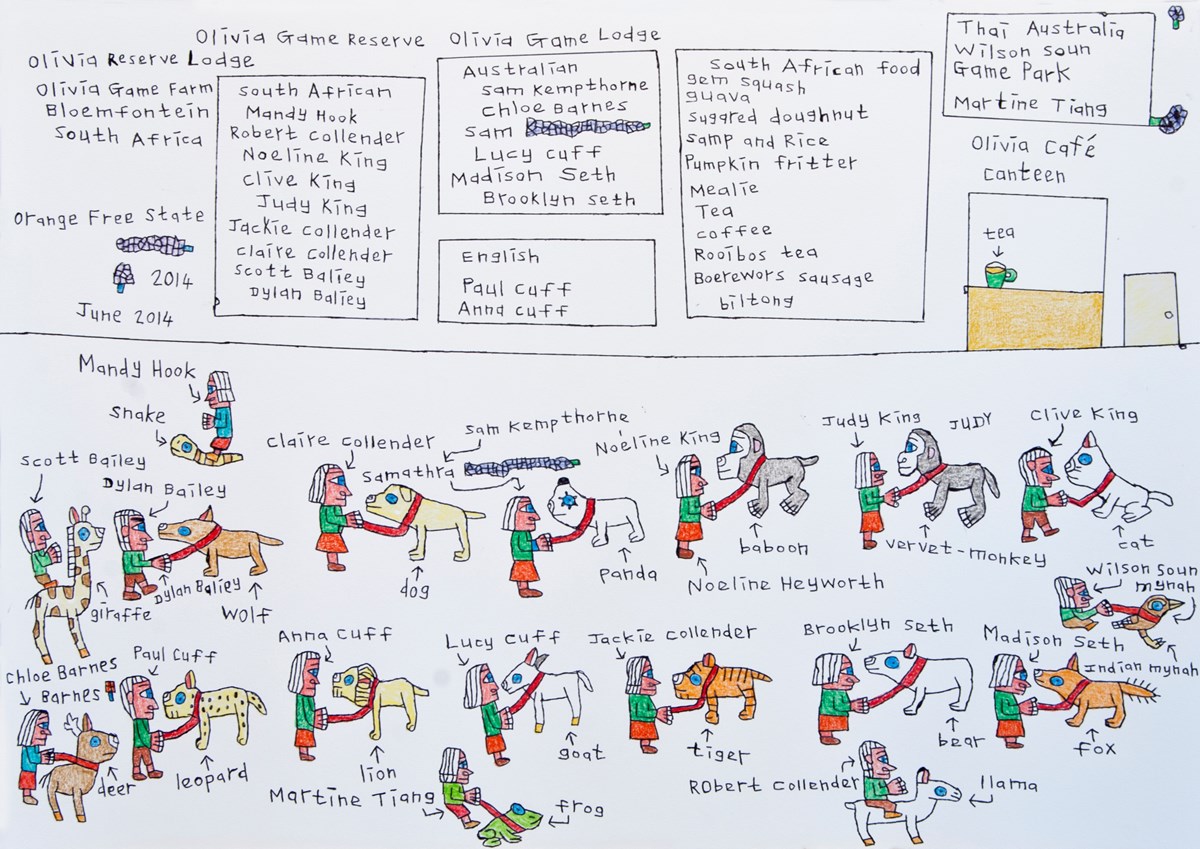 Olivia Game Reserve
Olivia Reserve Lodge
Olivia Game Farm
Bloemfontein
South Africa
Orange Free State
2014
June 2014
South African
Mandy Hook
Robert Collender
Noeline King
Clive King
Judy King
Jackie Collender
Claire Collender
Scott Baliey
Dylan Baliey
Olivia Game Lodge
Australian
Sam Kempthorne
Chloe Barnes
Sam
Lucy Cuff
Madison Seth
Brooklyn Seth
English
Paul Cuff
Anna Cuff
South African food
gem squash
guava
suggred doughnut
samp and Rice
Pumpkin fritter
Mealie
Tea
coffee
Rooibos tea
Boerewors sausage
biltong
Thai Australia
Wilson Soun
Game Park
Martine Tiang
Olivia Café
canteen
tea
Mandy Hook
snake
Scott Bailey
Dylan Bailey
giraffe
Dylan Baliey
wolf
Claire Collender
dog
Sam Kempthorne
Samathra
Panda
Noeline King
baboon
Noeline Heyworth
Judy King
JUDY
vervet-monkey
Clive King
cat
Wilson Soun
mynah
Indian mynah
Chloe Barnes
Barnes
deer
Paul Cuff
leopard
Anna Cuff
lion
Martine Tiang
frog
Lucy Cuff
goat
Jackie Collender
tiger
Brooklyn Seth
bear
Robert Collender
llama
Madison Seth
fox